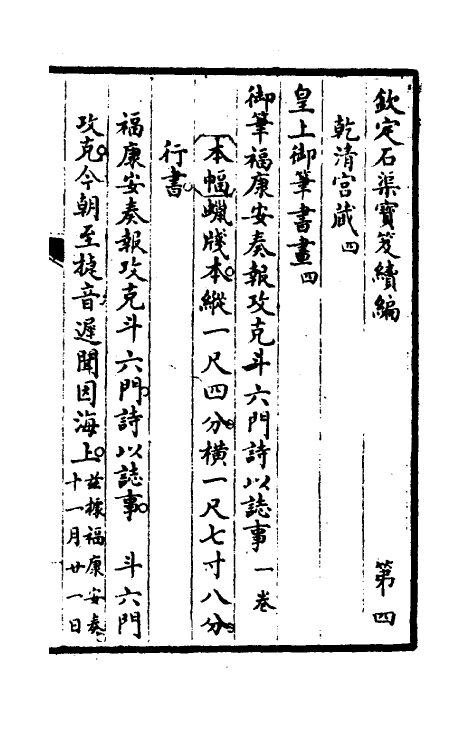 欽定石渠寶笈續編　第四
乾清宮藏四
皇上御筆書畫四
御筆福康安奏報攻克斗六門詩以誌事一卷
本幅蠟牋本縱一尺四分橫一尺七寸八分
行書
福康安奏報攻克斗六門詩以誌事　斗六門
攻克今朝至捷音遲聞因海上玆據福康安奏十一月廿一日